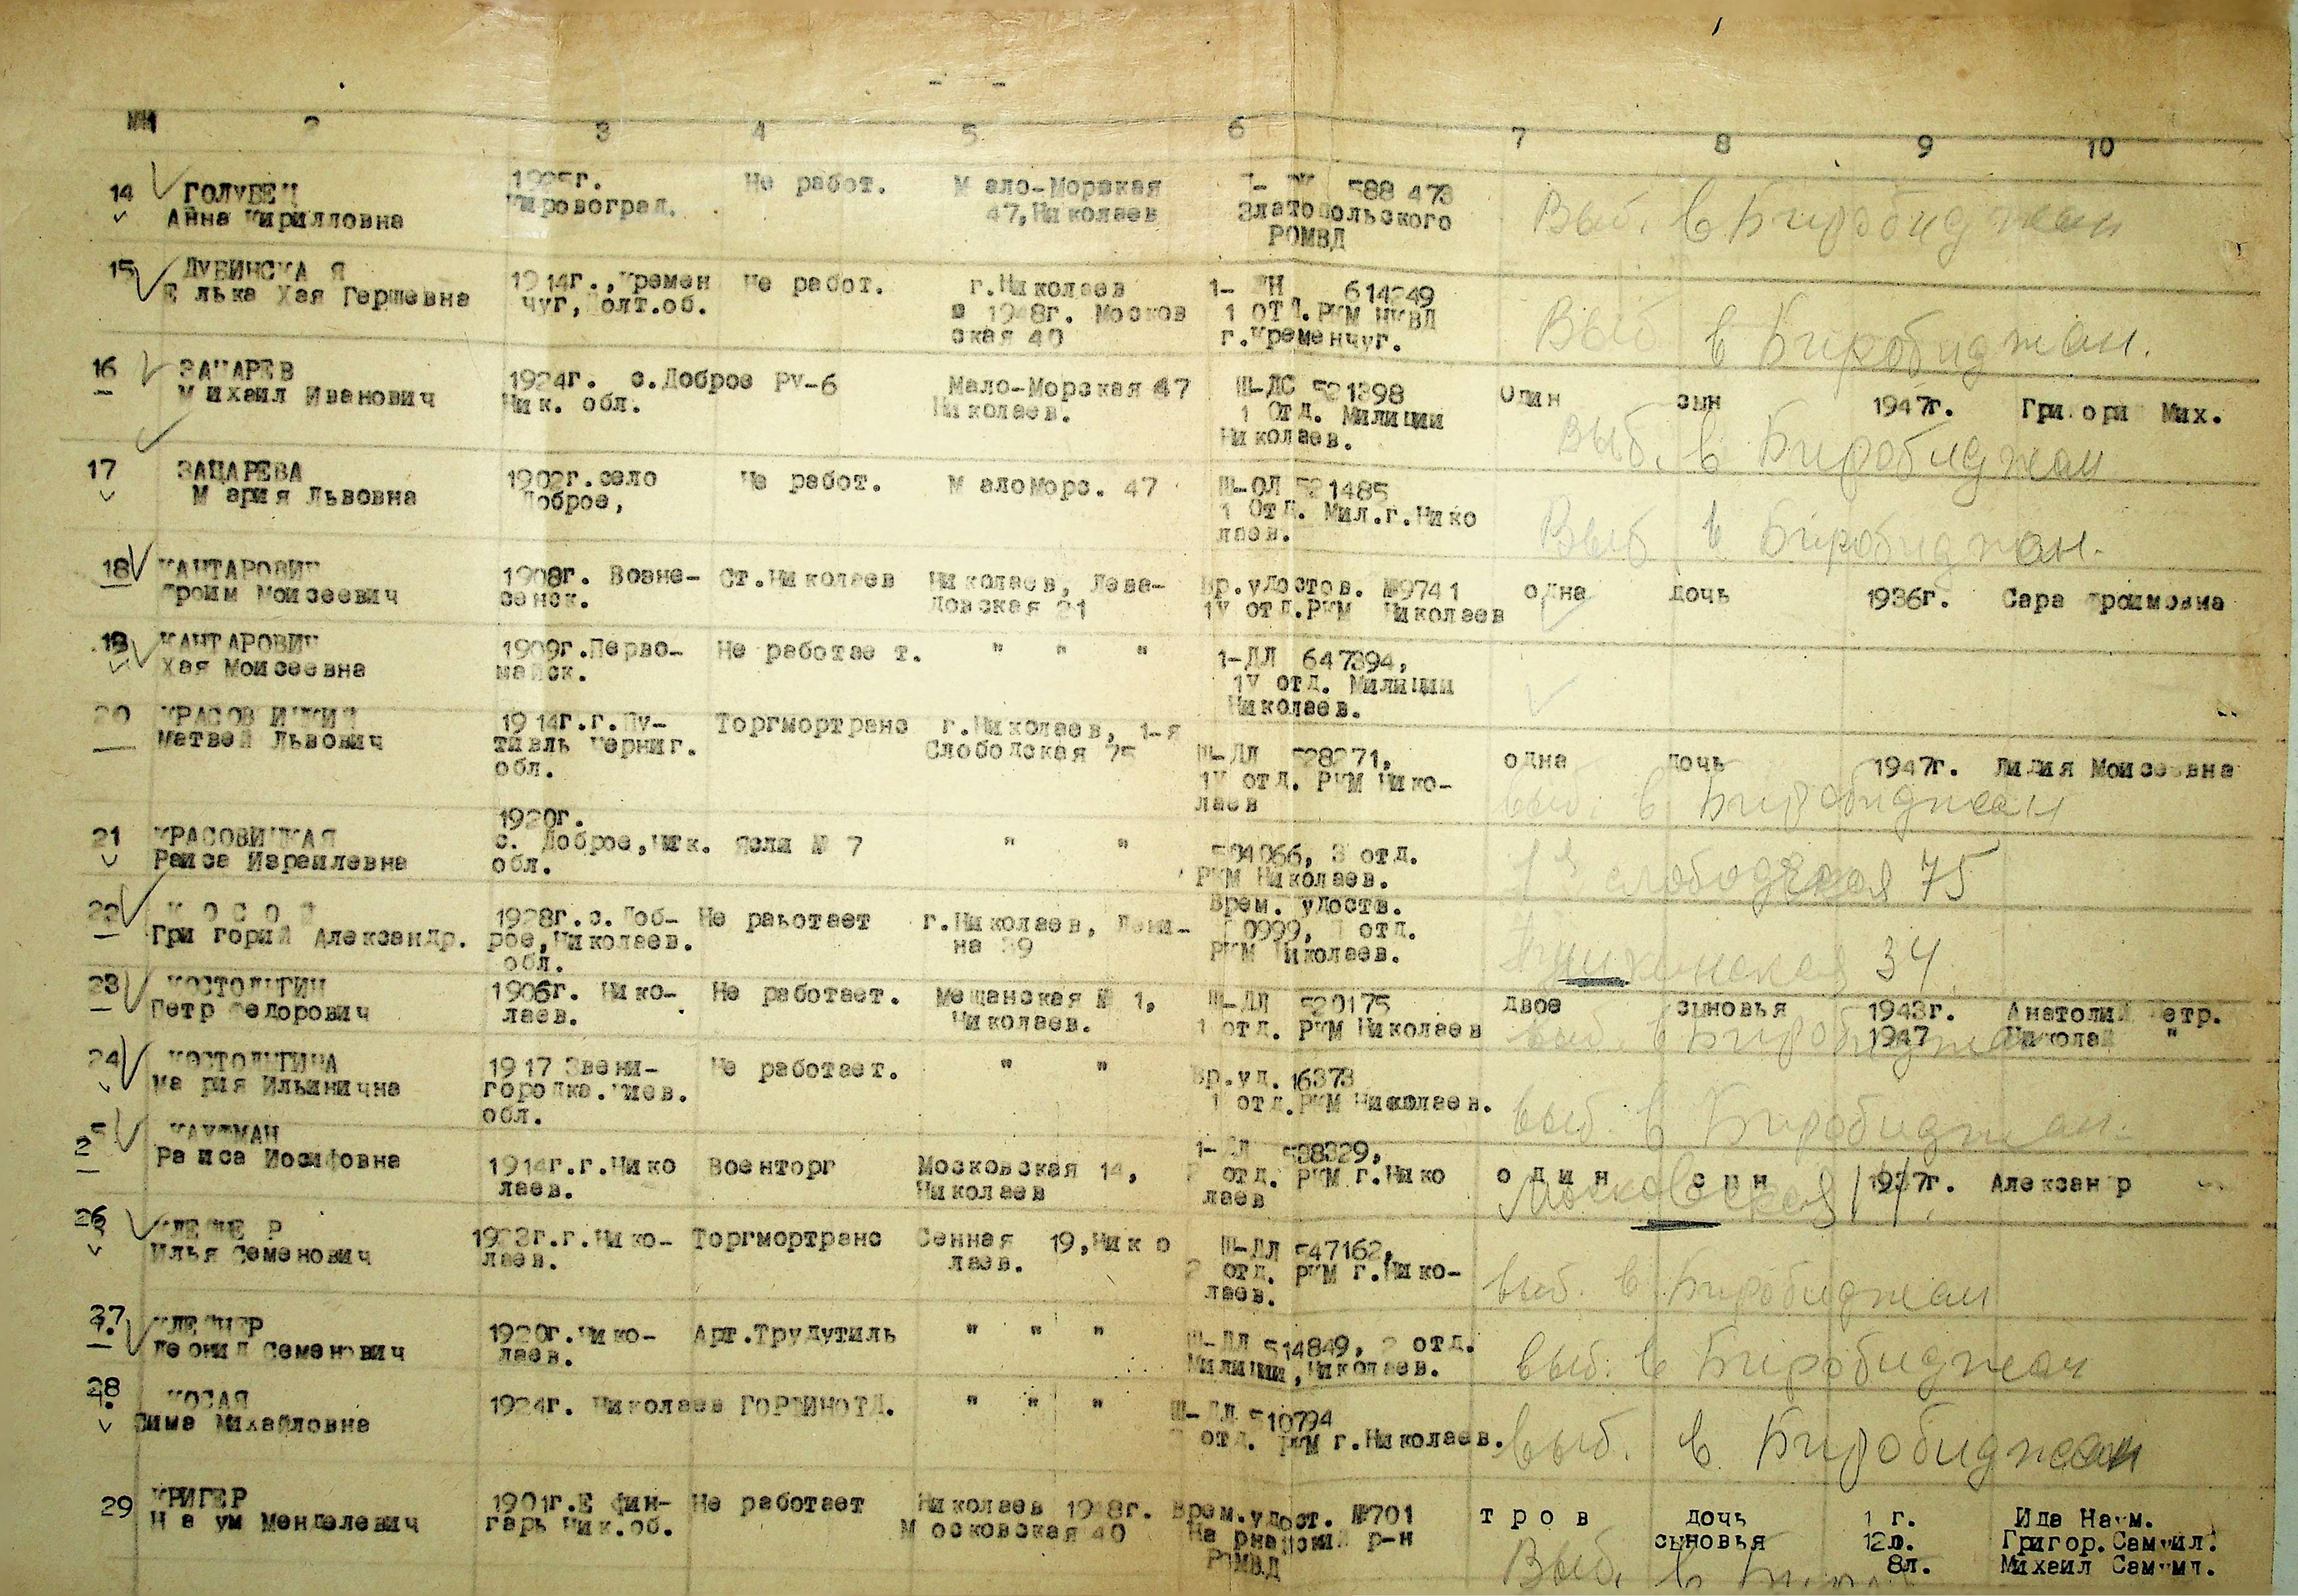 №№ 2 3 4 5 6 7 8 9 10
14 ГОЛУБЕЦ 1925г. Не работ. Мало-Морская 588 473
Анна Кирилловна Кировоград. 47, Николаев Златопольского
РОМВД
Выб. в Биробиджан
15 ДУБИНСКАЯ 1914г., Кремен Не работ. г.Николаев 1- 614249
Елька Хая Гершевна чуг, Полт.об. в 1948г. Москов 1 ОТД.РКМ НКВД
ская 40 г.Кременчуг.
Выб в Биробиджан.
16 ЗАЦАРЕВ 1924г. с.Доброе РУ-6 Мало-Морская 47 Ш-ДС 521398 Один сын 1947г. Григорий Мих.
Михаил Иванович Ник. обл. Николаев. 1 Отд. Милиции
Николаев.
Выб. в Биробиджан
17 ЗАЦАРЕВА 1902г.село Не работ. Маломорс. 47 Ш-ОЛ 521485
Мария Львовна Доброе, 1 Отд. Мил.г.Нико
лаев.
Выб в Биробиджан.
18 КАНТАРОВИЧ 1908г. Возне- Ст.Николаев Николаев, Лева- Вр.удостов. №9741 одна дочь 1936г. Сара Фроимовна
Фроим Моисеевич сенск. довская 21 1У отд.РКМ Николаев
19 КАНТАРОВИЧ 1909г.Перво- Не работает. " " " 1-ДЛ 647394,
Хая Моисеевна майск. 1У отд. Милиции
Николаев.
20 КРАСОВИЦКИЙ 1914г.г.Пу- Торгмортранс г.Николаев, 1-я
Матвей Львович тивль Черниг. Слободская 75 Ш-ДЛ 528271, одна дочь 1947г. Лидия Моисеевна
обл. 1У отд. РКМ Нико-
лаев
выб. в Биробиджан
21 КРАСОВИЦКАЯ 1920г.
Раиса Израилевна с. Доброе, Ник. Ясли № 7 " " 504066, 3 отд.
обл. РКМ Николаев.
1я слободская 75
22 КОСОЙ 1928г.с. Доб- Не работает г.Николаев, Лени- Врем. удоств.
Григорий Александр. рое, Николаев. на 39 0999, отд.
обл. РКМ Николаев.
Пушкинская 34.
23 КОСТОЛЫГИН 1906г. Нико- Не работает. Мещанская № 1, Ш-ДЛ 520175 двое сыновья 1943г. Анатолий Петр.
Петр Федорович лаев. Николаев. 1 отд. РКМ Николаев 1947 Николай "
выб. в Биробиджан
24 КОСТОЛЫГИНА 1917 Звени- Не работает. " " Вр.уд. 16373
Мария Ильинична городка.Киев. 1 отд.РКМ Николаев.
обл.
выб. в Биробиджан.
25 КАУФМАН
Раиса Иосифовна 1914г.г.Нико Военторг Московская 14, 1-ДЛ 538329, один сын 1937г. Александр
лаев. Николаев 2 отд. РКМ г.Нико
лаев
Московская 14.
26 КЛЕЙНЕР 1923г.г.Нико- Торгмортранс Сенная 19,Нико Ш-ДЛ 547162,
Илья Семенович лаев. лаев. 2 отд. РКМ г.Нико-
лаев.
выб. в Биробиджан
27 КЛЕЙНЕР 1920г.Нико- Арт.Трудутиль " " " Ш-ДЛ 514849, 2 отд.
Леонид Семенович лаев. Милиции, Николаев.
выб. в Биробиджан
28 КОСАЯ 1924г. Николаев ГОРФИНОТД. " " " Ш-ДЛ 510794
Сима Михайловна отд. РКМ г.Николаев.
выб. в Биробиджан
29 КРИГЕР 1901г.Е фин- Не работает Николаев 1948г. Врем.удост. №701 тров дочь 1 г. Ида Наум.
Наум Менделевич гарь Ник.об. Московская 40 р-н сыновья 12л. Григор.Самуил.
РОМВД 8л. Михаил Самуил.
Выб. в